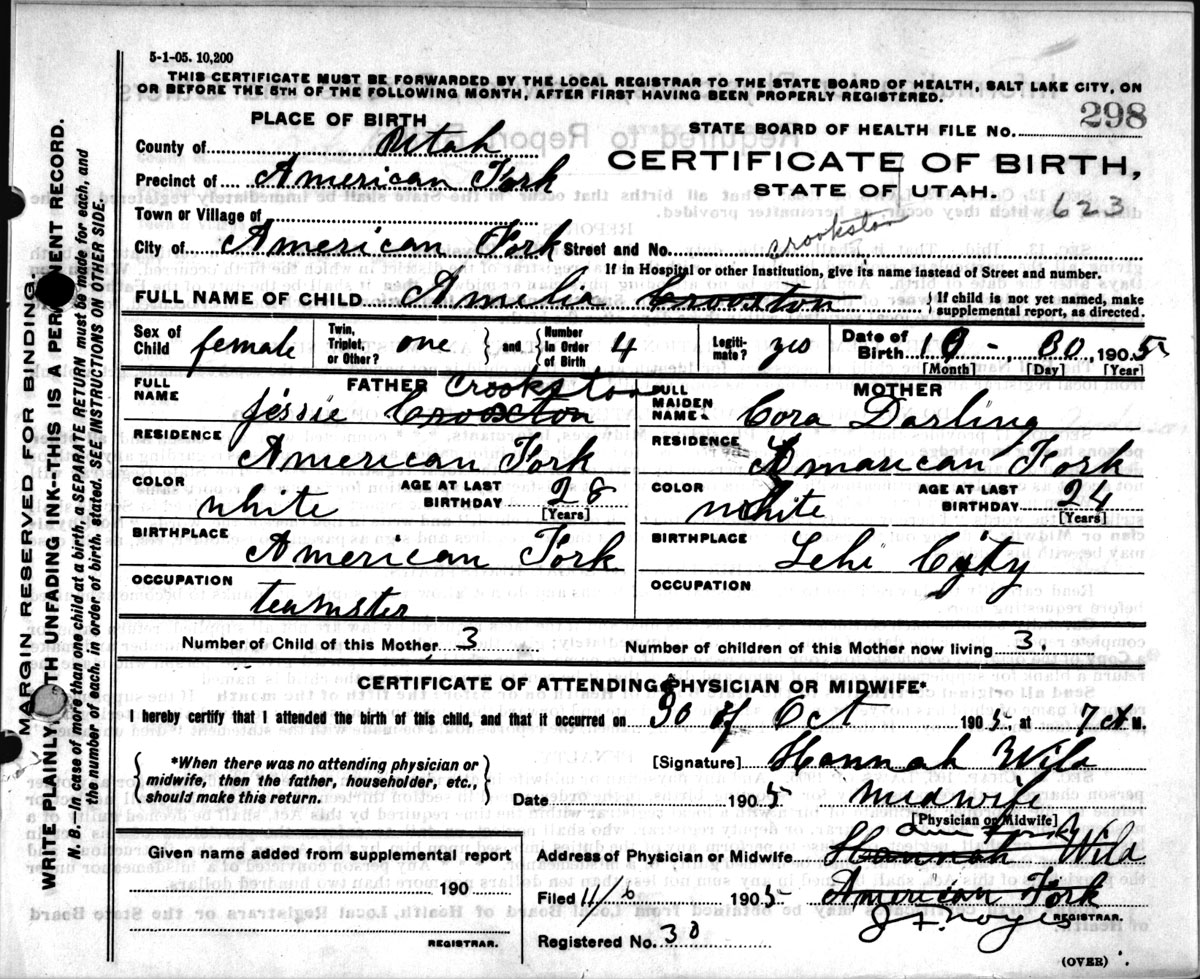 5-1-05. 10,200
THIS CERTIFICATE MUST BE FORWARDED BY THE LOCAL REGISTRAR TO THE STATE BOARD OF HEALTH, SALT LAKE CITY, ON
OR BEFORE THE 5TH OF THE FOLLOWING MONTH, AFTER FIRST HAVING BEEN PROPERLY REGISTERED.
298
PLACE OF BIRTH
STATE BOARD OF HEALTH FILE NO.
County of Utah
CERTIFICATE OF BIRTH,
Precinct of American Fork
STATE OF UTAH.
623
Town or Village of
Crookston
City of American Fork Street and No.
If in Hospital or other Institution, give its name instead of Street and number.
FULL NAME OF CHILD Amelia Crooxton { If child is not yet named, make supplemental report, as directed.
Sex of Child female Twin, Triplet, or Other? one } and { Number in Order of Birth 4 Legitimate? yes Date of Birth 10 - 30 1905
[Month] [Day] [Year]
FATHER Crookston
FULL NAME Jessie Crooxton
MOTHER
FULL MAIDEN NAME Cora Darling
RESIDENCE American Fork
RESIDENCE Amarican Fork
COLOR white AGE AT LAST BIRTHDAY 28 [Years]
COLOR white AGE AT LAST BIRTHDAY 24 [Years]
BIRTHPLACE American Fork
BIRTHPLACE Lehi Cyty
OCCUPATION teamster
OCCUPATION
Number of Child of this Mother 3
Number of children of this Mother now living 3.
CERTIFICATE OF ATTENDING PHYSICIAN OR MIDWIFE*
I hereby certify that I attended the birth of this child, and that it occurred on 30 of Oct 1905 at 7 M.
*When there was no attending physician or midwife, then the father, householder, etc., should make this return.
[Signature] Hannah Wild
Date 1905 midwife
[Physician or Midwife]
Given name added from supplemental report
190
REGISTRAR.
Address of Physician or Midwife Hannah Wild
Filed 11/6 1905 American Fork
REGISTRAR.
Registered No. 30
(OVER)
MARGIN RESERVED FOR BINDING.
WRITE PLAINLY WITH UNFADING INK--THIS IS A PERMANENT RECORD.
N. B. In case of more than one child at a birth, a SEPARATE RETURN must be made for each, and
the number of each, in order of birth, stated. SEE INSTRUCTIONS ON OTHER SIDE.